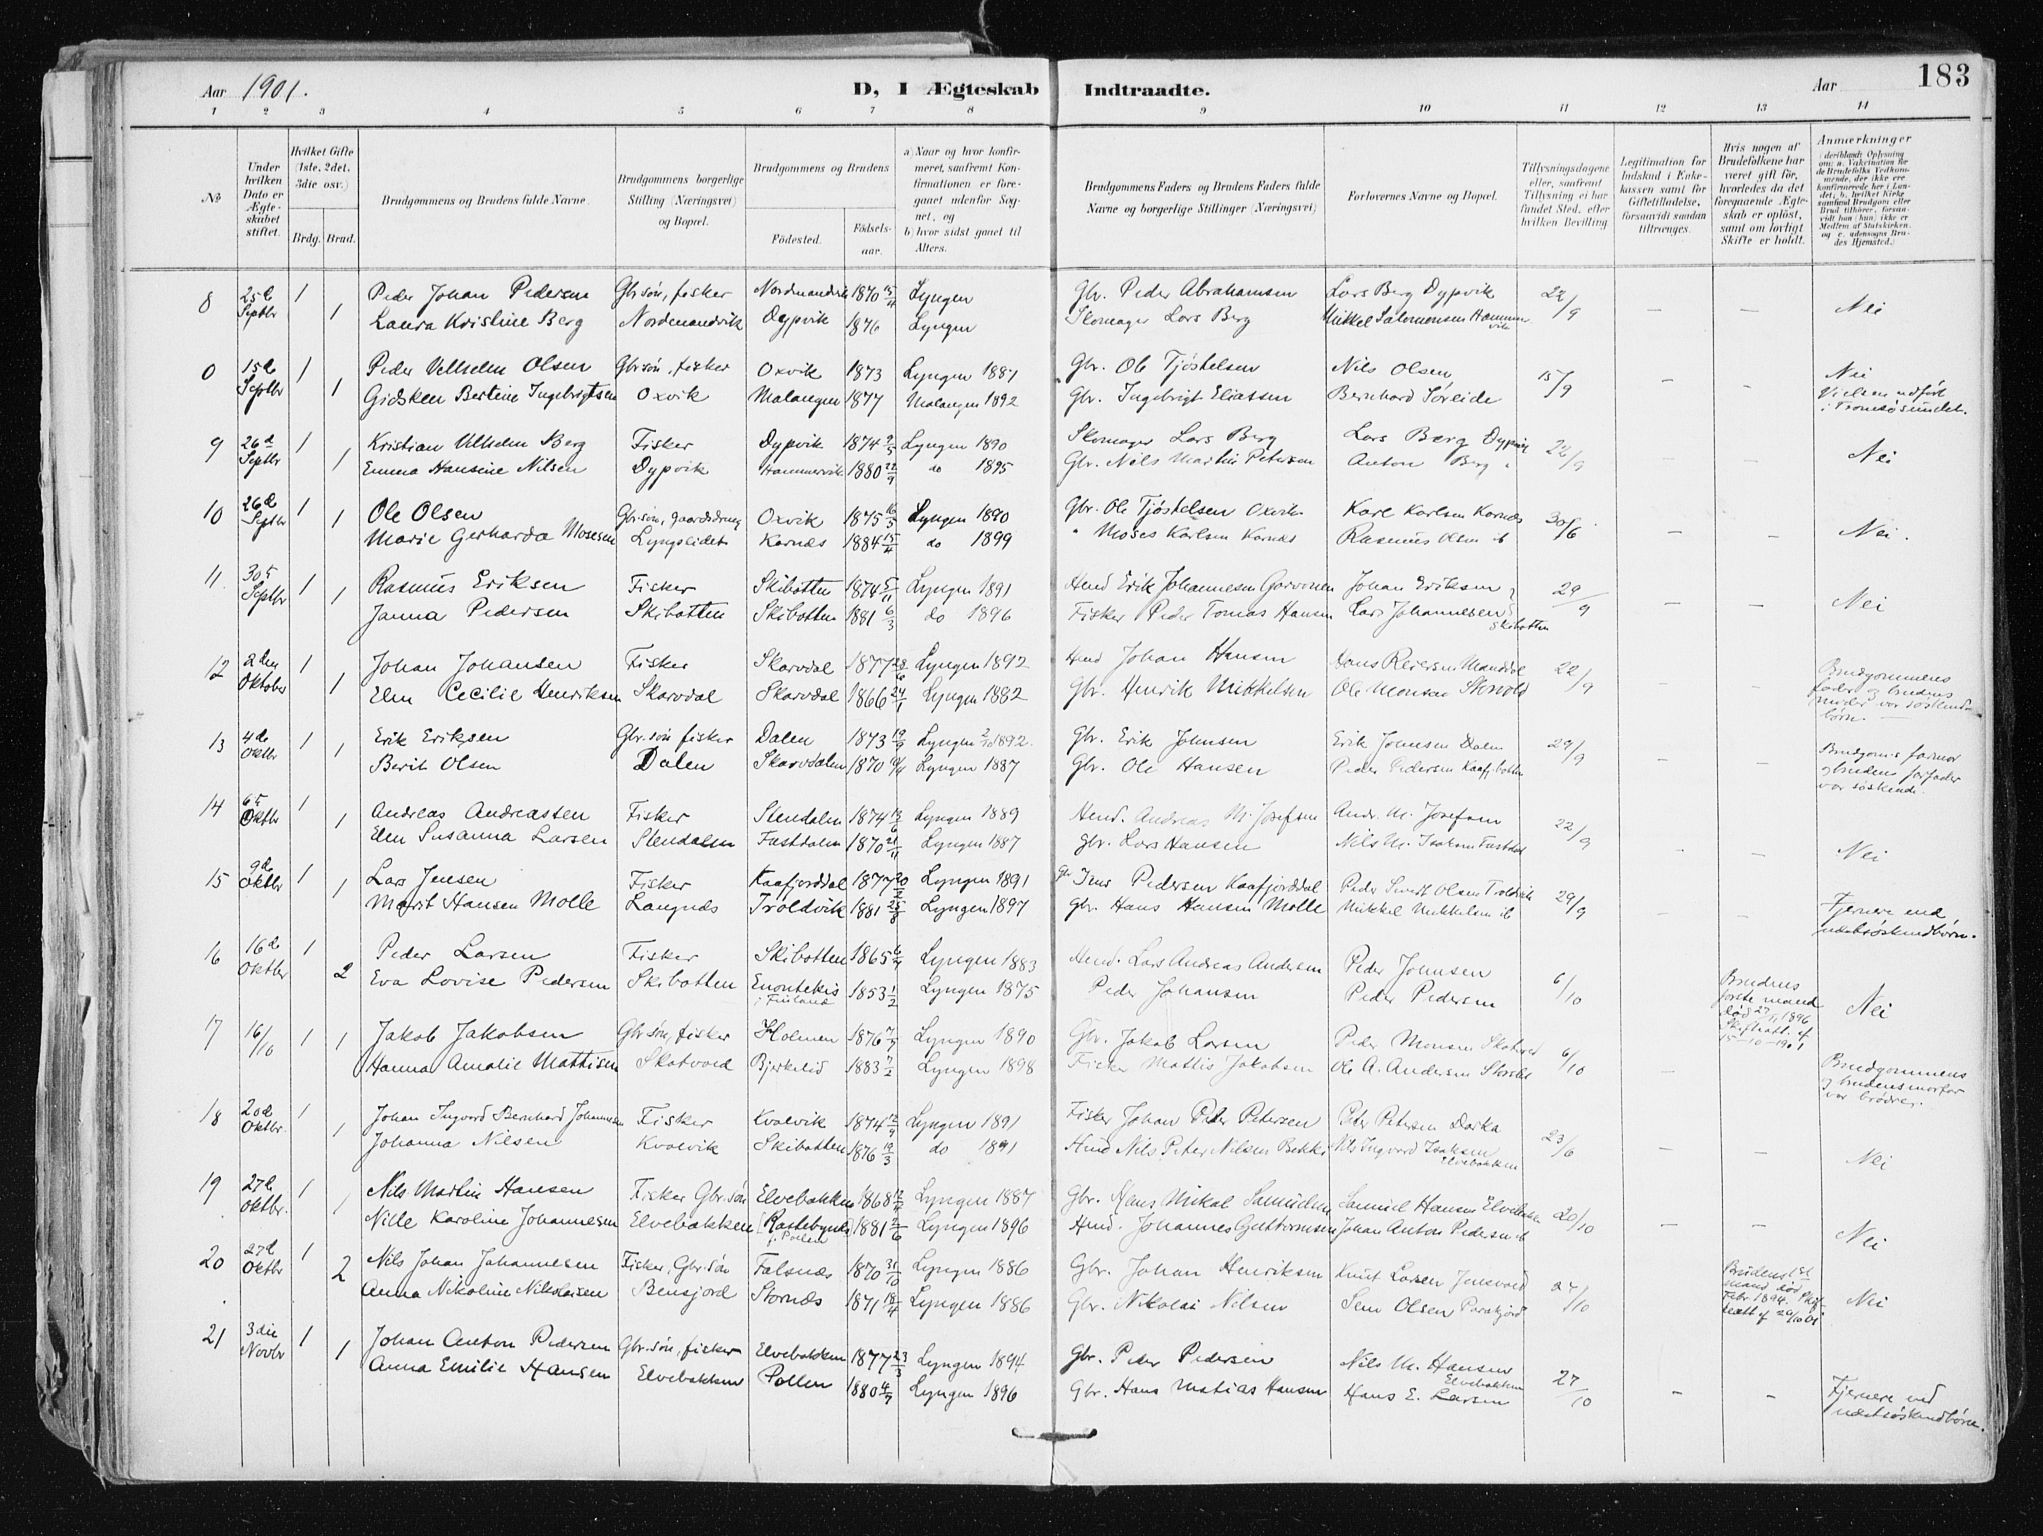 Aar 1901. D, I Ægteskab Indtraadte. Aar 183
1 2 3 4 5 6 7 8 9 10 11 12 13 14
No.
Under hvilken Dato er Ægteskabet stiftet.
Hvilket Gifte (1ste, 2det, 3die osv.)
Brdg. Brud.
Brudgommens og Brudens fulde Navne.
Brudgommens borgerlige Stilling (Næringsvei) og Bopæl.
Brudgommens og Brudens
Fødested. Fødselsaar.
a) Naar og hvor konfirmeret, saafremt Konfirmationen er foregaaet udenfor Sognet, og
b) hvor sidst gaaet til Alters.
Brudgommens Faders og Brudens Faders fulde Navne og borgerlige Stillinger (Næringsvei)
Forlovernes Navne og Bopæl.
Tillysningsdagene eller, saafremt Tillysning ei har fundet Sted, efter hvilken Bevilling
Legitimation for Indskud i Enkekassen samt for Giftetilladelse, forsaavidt saadan tiltrænges.
Hvis nogen af Brudefolkene har været gift før, hvorledes da det foregaaende Ægteskab er opløst, samt om lovligt Skifte er holdt.
Anmærkninger
8 25d Septbr 1 Peder Johan Pedersen Gbr.søn, fisker Nordmandvik 1870 15/4 Lyngen Gbr. Peder Abrahamsen Lars Berg Dypvik 22/9 – – Nei
1 Laura Kristine Berg Nordmandvik Dypvik 1876 Lyngen Skomager Lars Berg Mikkel Salomonsen Hammervik
0 15d Septbr 1 Peder Vilhelm Olsen Gbr.søn, fisker Oxvik 1873 Lyngen 1881 Gbr. Ole Tjøstelsen Nils Olsen 15/9 – – Nei
1 Gidsken Bertine Ingebrigtsen Oxvik Malangen 1877 Malangen 1892 Gbr. Ingebrigt Eliassen Bernhard Søreide Vielsen udført i Tromsøsundet.
9 26d Septbr 1 Kristian Vilhelm Berg Fisker Dypvik 1874 9/5 Lyngen 1890 Skomager Lars Berg Lars Berg Dypvik 22/9 Nei
1 Emma Hansine Nilsen Dypvik Hammervik 1880 22/9 do 1895 Gbr. Nils Martin Petersen Anton Berg "
10 26d Septbr 1 Ole Olsen Gbr.søn, gaardsdreng Oxvik 1875 16/3 Lyngen 1890 Gbr. Ole Tjøstelsen Oxvik Karl Karlsen Kornæs 30/6 – – Nei.
1 Marie Gerharda Mosesen Lyngslidet Kornæs 1884 15/4 do 1899 " Moses Karlsen Kornæs Rasmus Olsen ib
11. 30te Septbr 1 Rasmus Eriksen Fisker Skibotten 1874 5/11 Lyngen 1891 Hmd Erik Johannesen Johan Eriksen 29/9 – – Nei
1 Janna Pedersen Skibotten Skibotten 1881 6/3 do 1896 Fisker Peder Tomas Hansen Lars Johannesen Skibotten
12 2den Oktober 1 Johan Johansen Fisker Skarvdal 1877 28/6 Lyngen 1892 Hmd Johan Hansen Hans Reiersen Manddal 22/9 – – Brudgommens fader og brudens moder var søskendebørn.
1 Elen Cecilie Henriksen Skarvdal Skarvdal 1866 24/1 Lyngen 1882 Gbr. Henrik Mikkelsen Ole Monsen
13 4de Oktbr 1 Erik Eriksen Gbr.søn fisker Dalen 1873 19/9 Lyngen 1892. Gbr. Erik Johnsen Erik Johnsen Dalen 29/9 Brudgoms farmor og brudens farfader var søskende.
1 Berit Olsen Dalen Skarvdalen 1870 Lyngen 1887 Gbr. Ole Hansen Peder Pedersen Kaafjbotten
14 6te Oktbr 1 Andreas Andreassen Fisker Stendalen 1874 13/6 Lyngen 1889 Hmd. Andreas M. Josefsen Andr. M. Josefsen 22/9 – – Nei
1 Elen Susanna Larsen Stendalen Fastdalen 1870 21/11 Lyngen 1887 Gbr. Lars Hansen Nils M. Isaksen Fastdal
15 9de Oktbr 1 Lars Jensen Fisker Kaafjorddal 1877 20/2 Lyngen 1891 Gbr Jens Pedersen Kaafjorddal Peder Olsen Troldvik 29/9 – – Fjernere end næstsøskendbørn.
1 Marit Hansen Molle Langnæs Troldvik 1881 25/8 Lyngen 1897 Gbr. Hans Hansen Molle Mikkel Mikkelsen ib
16 16d Oktbr 1 Peder Larsen Fisker Skibotten 1865 6/9 Lyngen 1883 Hmd. Lars Andreas Andersen Peder Johnsen 6/10 Brudens første mand død 27/11 1896 Skifteatt. af 15–10–1901 Nei
2 Eva Lovise Pedersen Skibotten Enontekis i Finland 1853 1/2 Lyngen 1875 Peder Johansen Peder Pedersen
17 16/10 1 1 Jakob Jakobsen Gbr.søn, fisker Holmen 1876 7/9 Lyngen 1890 Gbr. Jakob Larsen Peder Monsen 6/10 – Brudgommens og brudens morfar var brødre.
Hanna Amalie Mathisen Skatvold Bjerkelid 1883 7/2 Lyngen 1898 Fisker Mattis Jakobsen Ole A. Andersen
18 20d Oktbr. 1 Johan Ingvard Bernhard Johannesen Fisker Kvalvik 1874 12/9 Lyngen 1891 Fisker Johan Peter Petersen Peter Petersen 23/6 – – Nei
1 Johanna Nilsen Kvalvik Skibotten 1876 19/3 do 1891 Hmd Nils Peter Nilsen Bekki Nils Ingvard Isaksen Elvebakken
19 27de Oktbr. 1 Nils Martin Hansen Fisker Gbr.søn Elvebakken 1868 Lyngen 1887 Gbr. Hans Mikal Samuelsen Samuel Hansen Elvebakken 20/10 – – Nei
1 Nille Karoline Johannesen Elvebakken i Pollen 1881 2/6 Lyngen 1896 Hmd. Johannes Guttormsen Johan Anton Pedersen ib
20 27d Oktbr 1 Nils Johan Johannesen Fisker, Gbr.søn Falsnæs 1870 31/10 Lyngen 1886 Gbr. Johan Henriksen Knut Larsen 27/10 Brudens 1st mand død Febr 1894. Nei
2 Anna Nikoline Nikolaisen Bensjord Stornæs 1871 18/4 Lyngen 1886 Gbr. Nikolai Nilsen Sem Olsen
21 3die Novbr 1 Johan Anton Pedersen Gbr.søn, fisker Elvebakken 1877 23/3 Lyngen 1894 Gbr. Peder Pedersen Nils M. Hansen Elvebakken 27/10 – – Fjernere end næstsøskendbørn.
1 Anna Emilie Hansen Elvebakken Pollen 1880 4/9 Lyngen 1896 Gbr. Hans Matias Hansen Hans E. Larsen